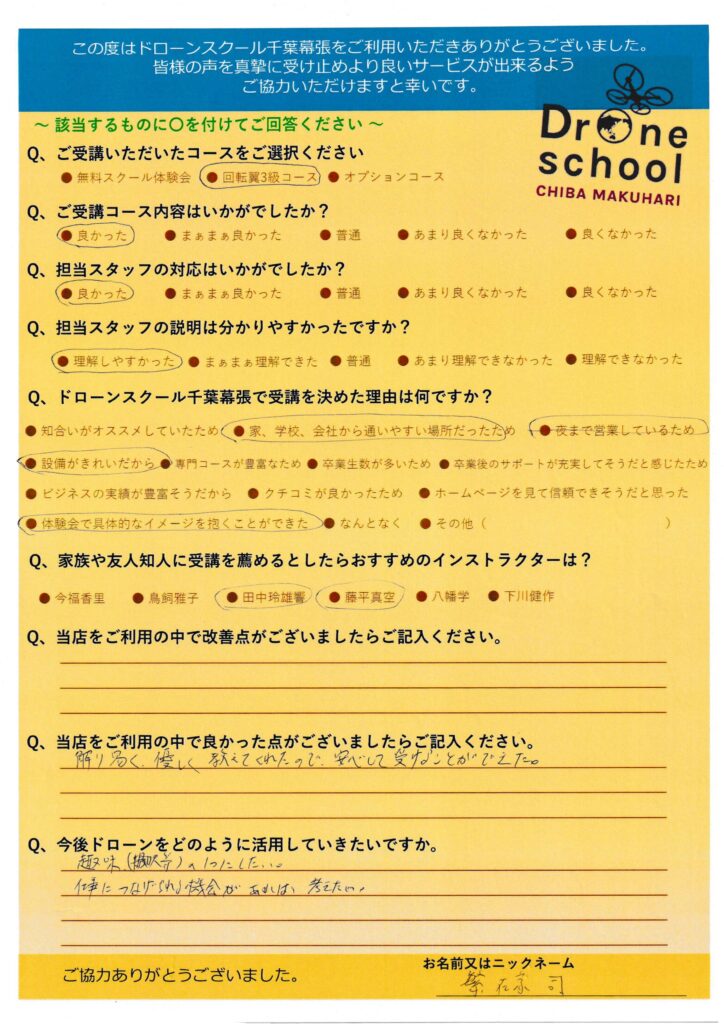 この度はドローンスクール千葉幕張をご利用いただきありがとうございました。
皆様の声を真摯に受け止めより良いサービスが出来るよう
ご協力いただけますと幸いです。
Drone
school
CHIBA MAKUHARI
～ 該当するものに〇を付けてご回答ください ～
Q、ご受講いただいたコースをご選択ください
●無料スクール体験会 ●回転翼3級コース ●オプションコース
Q、ご受講コース内容はいかがでしたか？
●良かった ●まぁまぁ良かった ●普通 ●あまり良くなかった ●良くなかった
Q、担当スタッフの対応はいかがでしたか？
●良かった ●まぁまぁ良かった ●普通 ●あまり良くなかった ●良くなかった
Q、担当スタッフの説明は分かりやすかったですか？
●理解しやすかった ●まぁまぁ理解できた ●普通 ●あまり理解できなかった ●理解できなかった
Q、ドローンスクール千葉幕張で受講を決めた理由は何ですか？
●知合いがオススメしていたため ●家、学校、会社から通いやすい場所だったため ●夜まで営業しているため
●設備がきれいだから ●専門コースが豊富なため ●卒業生数が多いため ●卒業後のサポートが充実してそうだと感じたため
●ビジネスの実績が豊富そうだから ●クチコミが良かったため ●ホームページを見て信頼できそうだと思った
●体験会で具体的なイメージを抱くことができた ●なんとなく ●その他（ ）
Q、家族や友人知人に受講を薦めるとしたらおすすめのインストラクターは？
●今福香里 ●鳥飼雅子 ●田中玲雄響 ●藤平真空 ●八幡学 ●下川健作
Q、当店をご利用の中で改善点がございましたらご記入ください。
Q、当店をご利用の中で良かった点がございましたらご記入ください。
解り易く、優しく教えてくれたので、安心して受けることができた。
Q、今後ドローンをどのように活用していきたいですか。
趣味(撮影等)の1つにしたい。
仕事につなげられる機会があれば、考えたい。
お名前又はニックネーム
司
ご協力ありがとうございました。